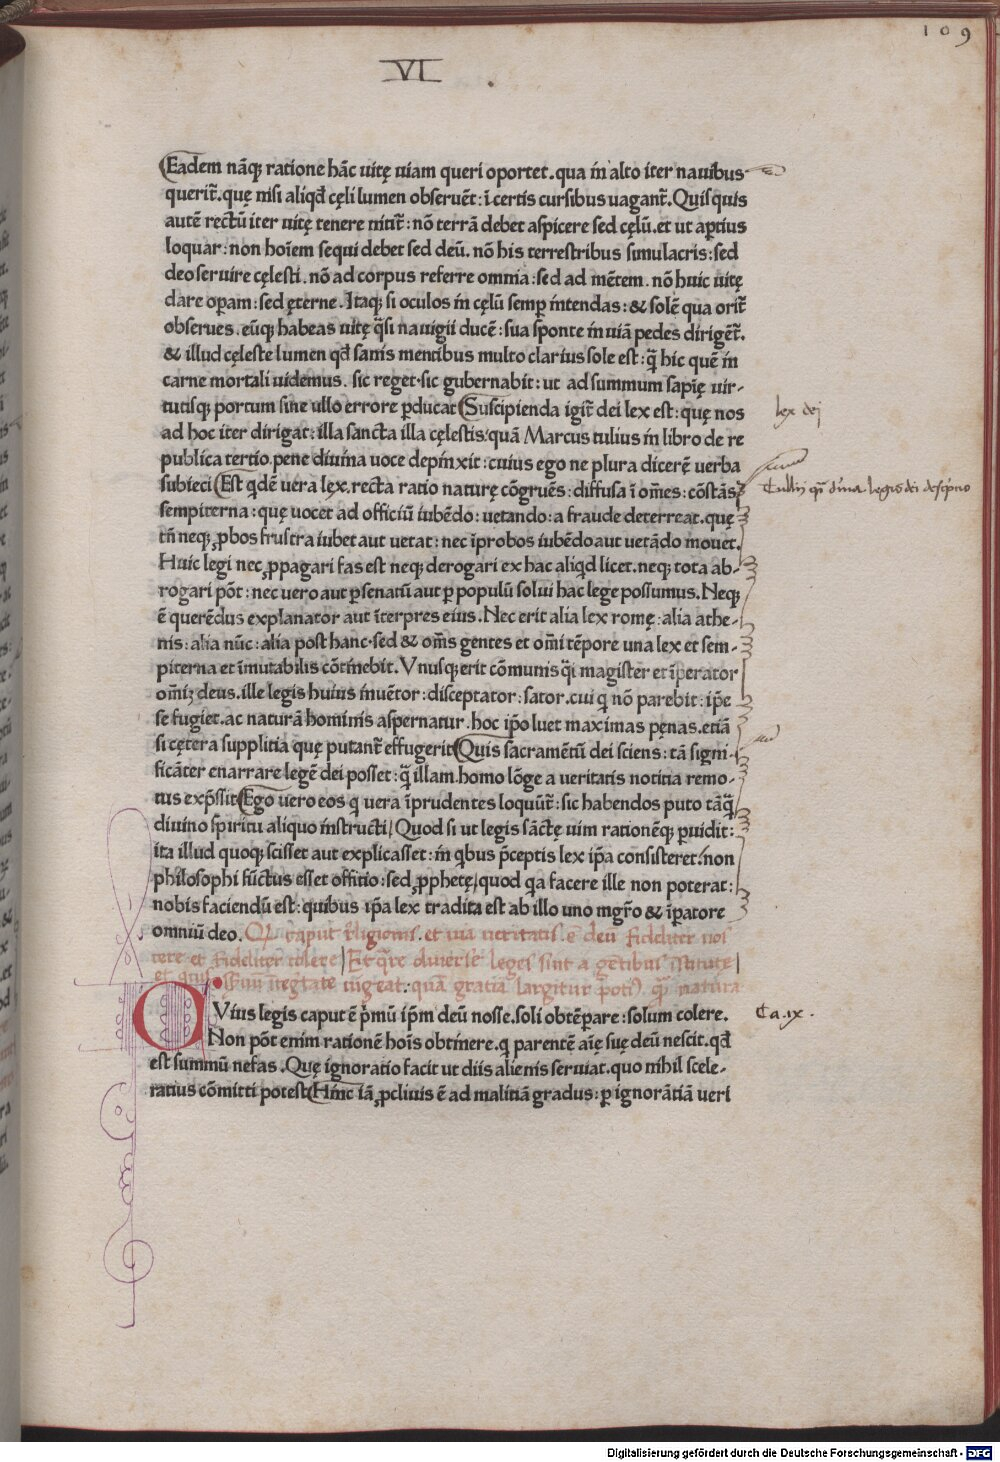 109
VI
Eadem nãq; ratione hãc uitę uiam queri oportet.qua in alto iter nauibus
querit᷑.quę nisi aliqd̃ cęli lumen obseruẽt:ĩ certis cursibus uagant᷑.Quisquis
autẽ rectũ iter uitę tenere nitit᷑:nõ terrã debet aspicere sed cęlũ.et ut aꝑtius
loquar:non hoĩem sequi debet sed deũ.nõ his terrestribus simulacris:sed
deo seruire cęlesti.nõ ad corpus referre omnia:sed ad mẽtem.nõ huic uitę
dare oꝑam:sed ęterne.Itaq; si oculos in cęlũ semꝑ intendas:& solẽ qua orit᷑
obserues.eũq; habeas uitę q̃si nauigii ducẽ:sua sponte in uiã pedes diriget᷑.
& illud cęleste lumen qd̃ sanis mentibus multo clarius sole est:q̃ hic quẽ in
carne mortali uidemus. sic reget.sic gubernabit:ut ad summum sapiẽ uir-
tutisq; portum sine ullo errore ꝑducat Suscipienda igit᷑ dei lex est:quę nos
ad hoc iter dirigat:illa sancta illa cęlestis:quã Marcus tulius in libro de re
publica tertio.pene diuina uoce depinxit:cuius ego ne plura dicerẽ uerba
subieci Est qdẽ uera lex.recta ratio naturę cõgruẽs:diffusa ĩ om̃es:cõstãs
sempiterna:quę uocet ad officiũ iubẽdo:uetando:a fraude deterreat.quę
tñ neq; ꝓbos frustra iubet aut uetat:nec ĩprobos iubẽdo aut uetãdo mouet.
Huic legi nec ꝓpagari fas est neq; derogari ex hac aliqd licet.neq; tota ab-
rogari põt:nec uero aut ꝑ senatũ aut ꝑ populũ solui hac lege possumus.Neq;
ẽ querẽdus explanator aut ĩterpres eius.Nec erit alia lex romę:alia athe-
nis:alia nũc:alia post hanc.sed & om̃s gentes et om̃i tẽpore una lex et sem-
piterna et ĩmutabilis cõtinebit.Vnusq; erit cõmunis q̃i magister et ĩperator
om̃iꝫ deus.ille legis huius inuẽtor:disceptator:sator.cui q nõ parebit:ip̃e
se fugiet.ac naturã hominis aspernatur.hoc ip̃o luet maximas pęnas.etiã
si cętera supplitia quę putant᷑ effugerit Quis sacramẽtũ dei sciens:tã signi-
ficãter enarrare legẽ dei posset:q̃ illam.homo lõge a ueritatis notitia remo-
tus exp̃ssit Ego uero eos q uera ĩprudentes loquũt᷑:sic habendos puto tãq̃
diuino spiritu aliquo instructi/Quod si ut legis sãctę uim rationẽq; ꝑuidit:
ita illud quoq; scisset aut explicasset:in qbus p̃ceptis lex ip̃a consisteret:non
philosophi fũctus esset offitio:sed ꝓphetę/quod qa facere ille non poterat:
nobis faciendũ est:quibus ip̃a lex tradita est ab illo uno mgr̃o & ĩpatore
omniũ deo. Qđ caput religionis.et uia ueritatis.ẽ deũ fideliter nos
cere et fideliter colere/Et q̃re diuerse leges sint a gẽtibus
uigeat.quã gratia largitur potiꝰ. natura
CVius legis caput ẽ p̃mũ ip̃m deũ nosse.soli obtẽꝑare:solum colere.
Non põt enim rationẽ hoĩs obtinere.q parentẽ aĩę suę deũ nescit.qd̃
est summũ nefas.Quę ignoratio facit ut diis alienis seruiat.quo nihil scele-
ratius cõmitti potest Hinc iã ꝓcliuis ẽ ad malitiã gradus:ꝑ ignorãtiã ueri
lex dei
Ca.ix.
Digitalisierung gefördert durch die Deutsche Forschungsgemeinschaft - DFG